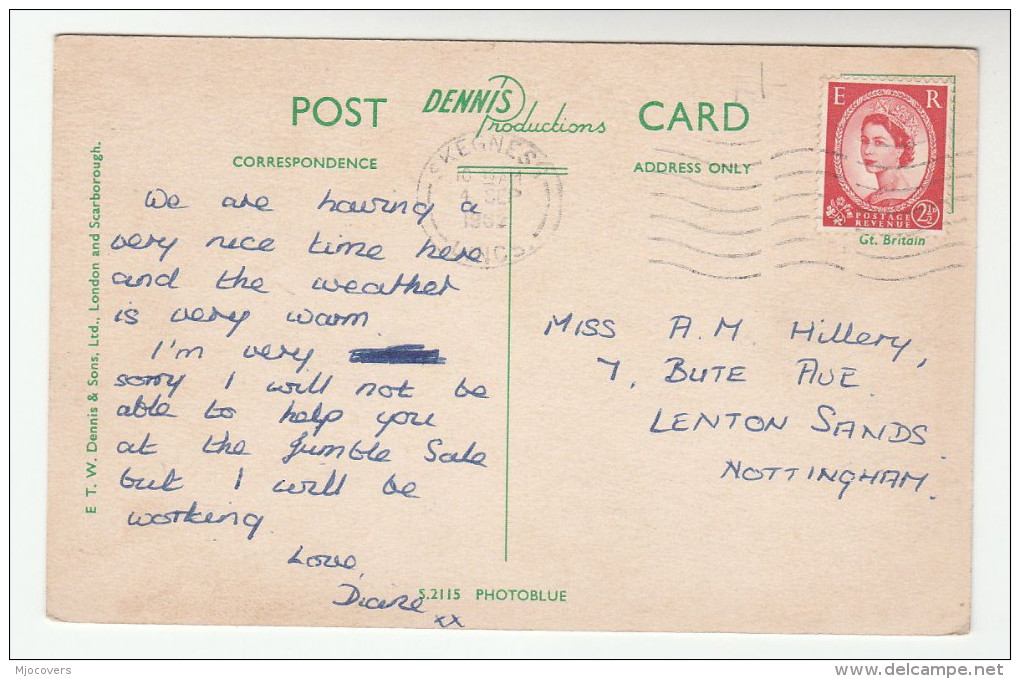 POST DENNIS Productions CARD
CORRESPONDENCE ADDRESS ONLY
E T. W. Dennis & Sons, Ltd., London and Scarborough.
SKEGNESS
4 SEP
1962
LINCS.
E R
POSTAGE
REVENUE
2½D
Gt. Britain
We are having a
very nice time here
and the weather
is very warm
I'm very
sorry I will not be
able to help you
at the Jumble Sale
but I will be
working
Love,
Diane
xx
MISS A. M. Hillery,
7, BUTE AVE
LENTON SANDS
NOTTINGHAM.
S.2115 PHOTOBLUE
Mjocovers
delcampe.net